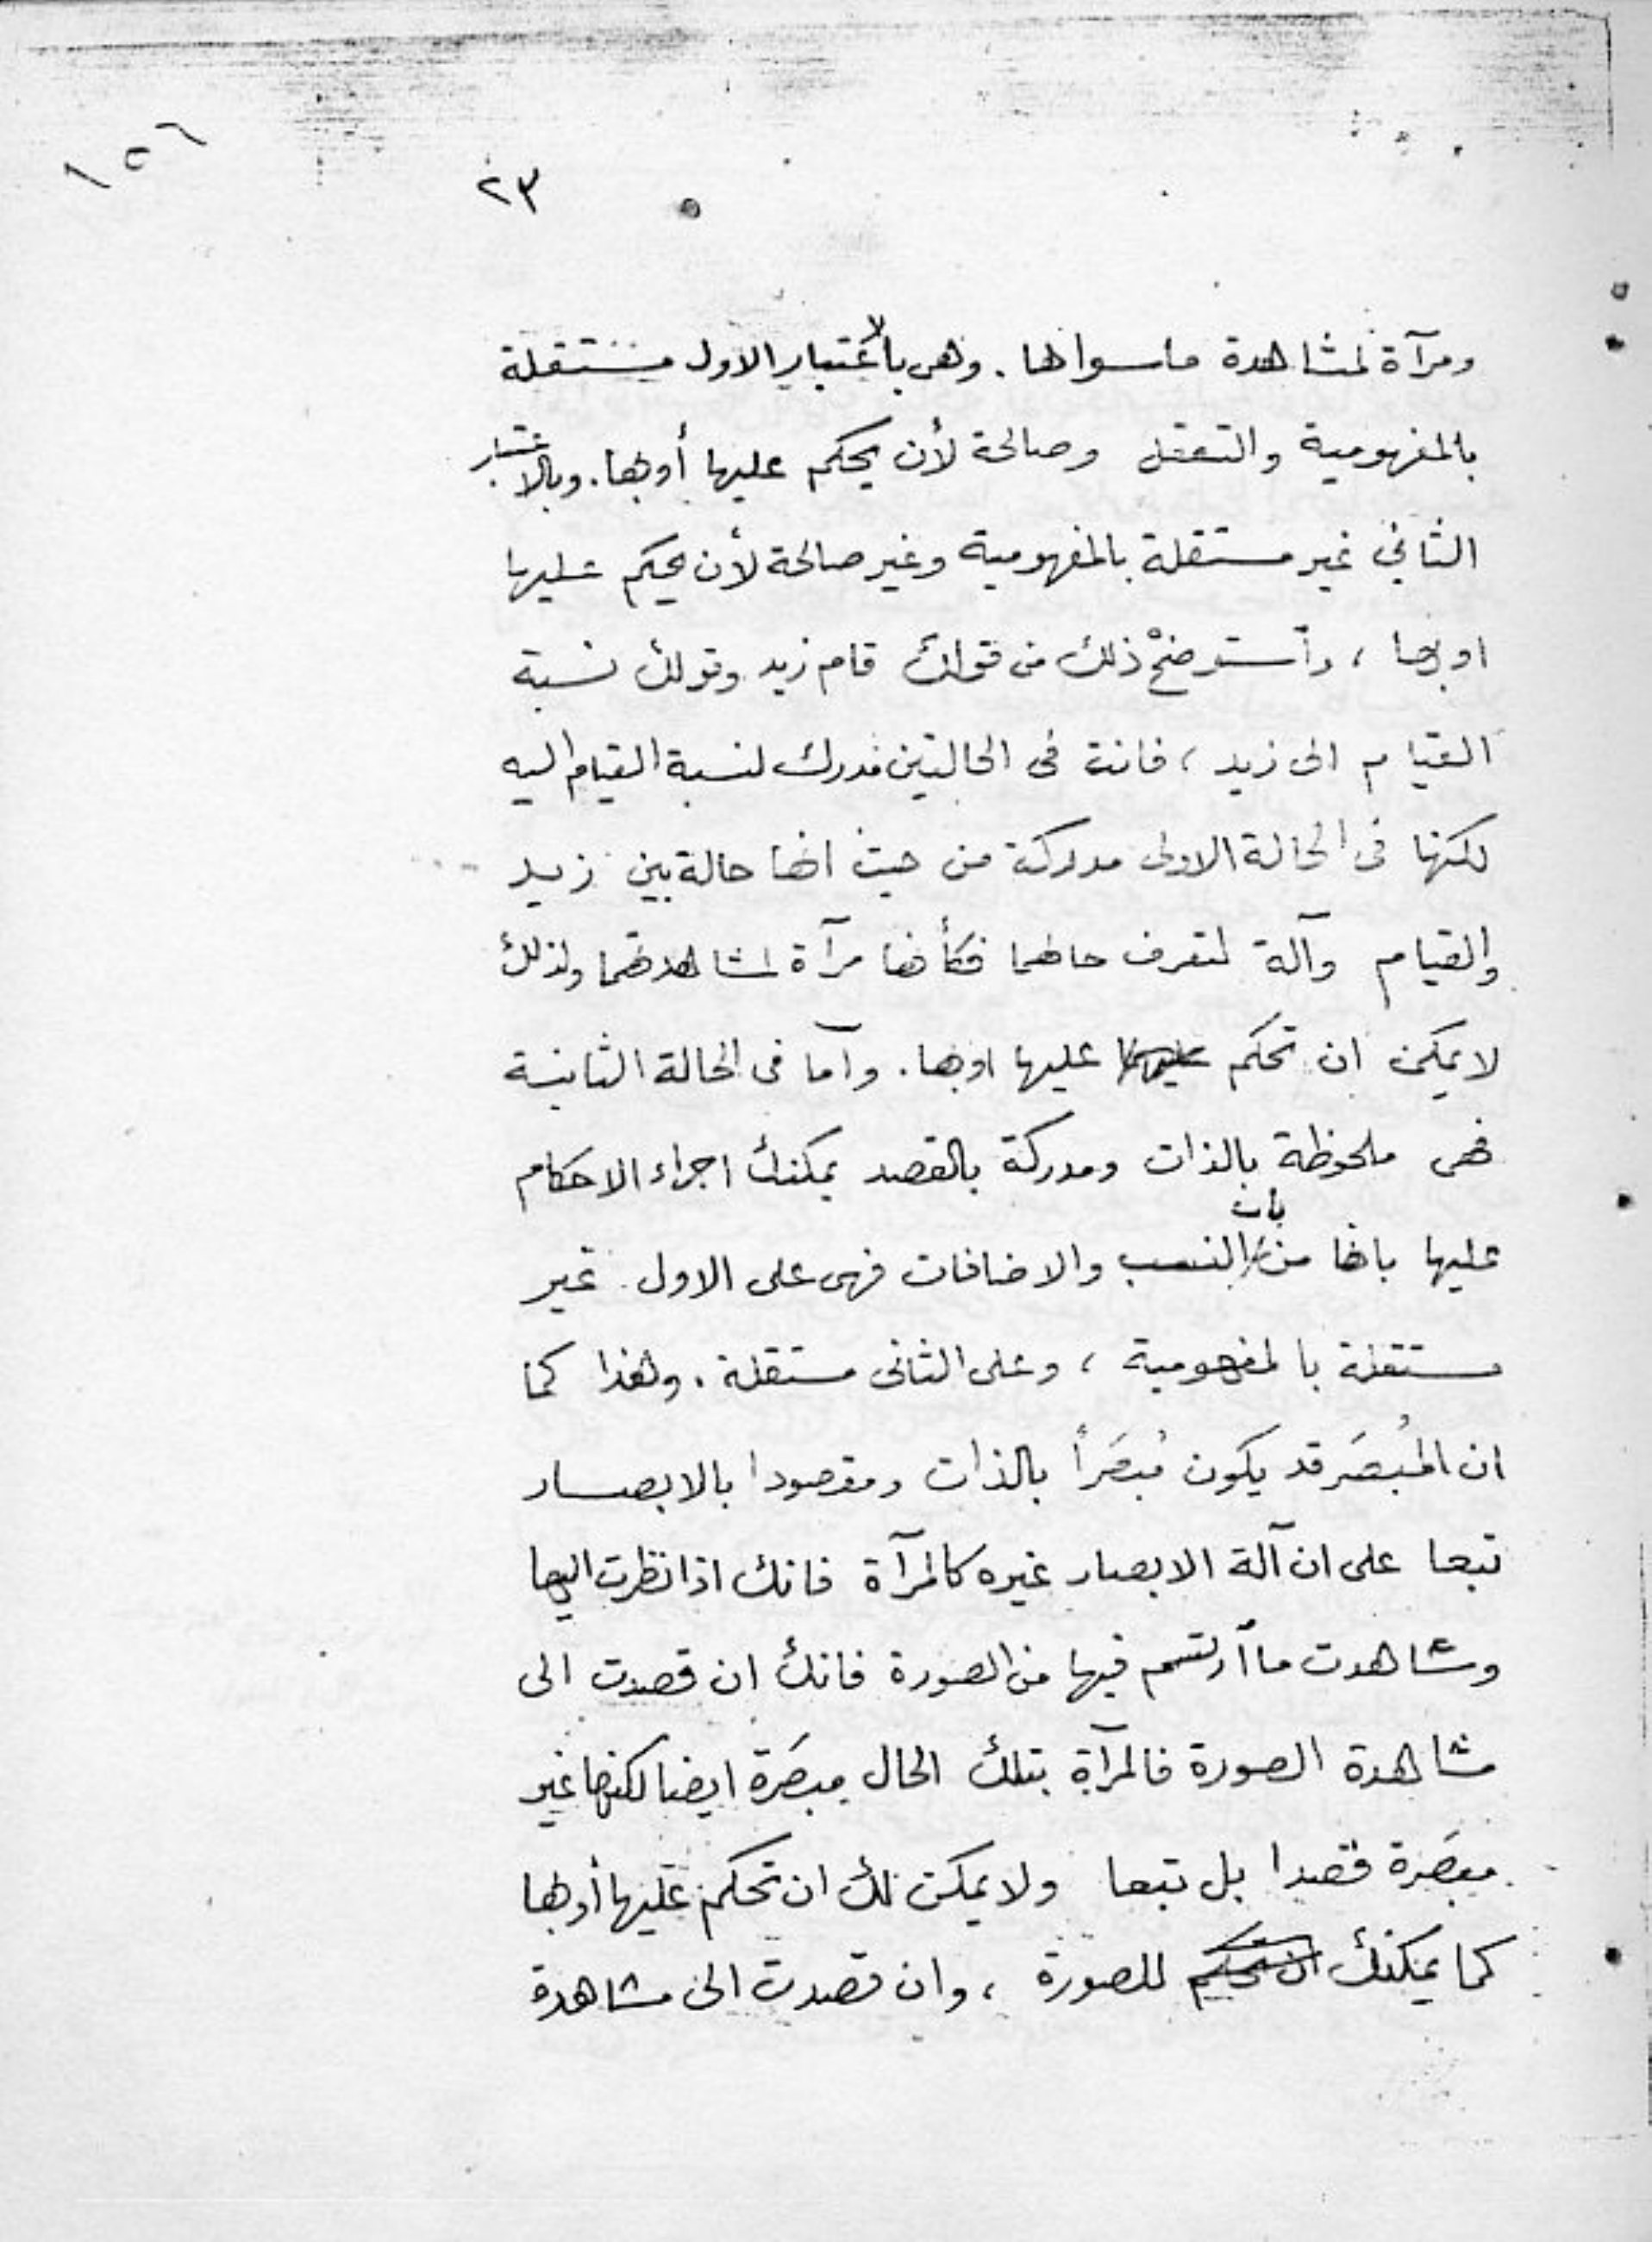 ١٥٦
٢٣
ومرآة لمشاهدة ماسواها . وهى بالاعتبار الاول مستقلة
بالمفهومية والتعقل وصالحة لأن يحكم عليها أوبها . وبالاعتبار
الثاني غير مستقلة بالمفهومية وغير صالحة لأن يحكم عليها
اوبها ، وأستوضحْ ذلك من قولك قام زيد وقولك نسبة
القيام الى زيد ، فانت فى الحالتين مدرك لنسبة القيام اليه
لكنها فى الحالة الاولى مدركة من حيث انها حالة بين زيد
والقيام وآلة لتعرف حالهما فكأنها مرآة لمشاهدتهما ولذلك
لا يمكن ان تحكم عليها اوبها . وأما فى الحالة الثانية
فهى ملحوظة بالذات ومدركة بالقصد يمكنك اجراء الاحكام
عليها بانها من النسب والاضافات فهى على الاول غير
مستقلة بالمفهومية ، وعلى الثانى مستقلة . وهذا كما
ان المُبصَر قد يكون مُبصَراً بالذات ومقصودا بالابصار
تبعا على ان آلة الابصار غيره كالمرآة فانك اذا نظرت اليها
وشاهدت ما أرتسم فيها من الصورة فانك ان قصدت الى
مشاهدة الصورة فالمرآة بتلك الحال مبصَرة ايضا لكنها غير
مبصَرة قصدا بل تبعا ولا يمكن لك ان تحكم عليها أوبها
كما يمكنك ان تحكم للصورة ، وان قصدت الى مشاهدة